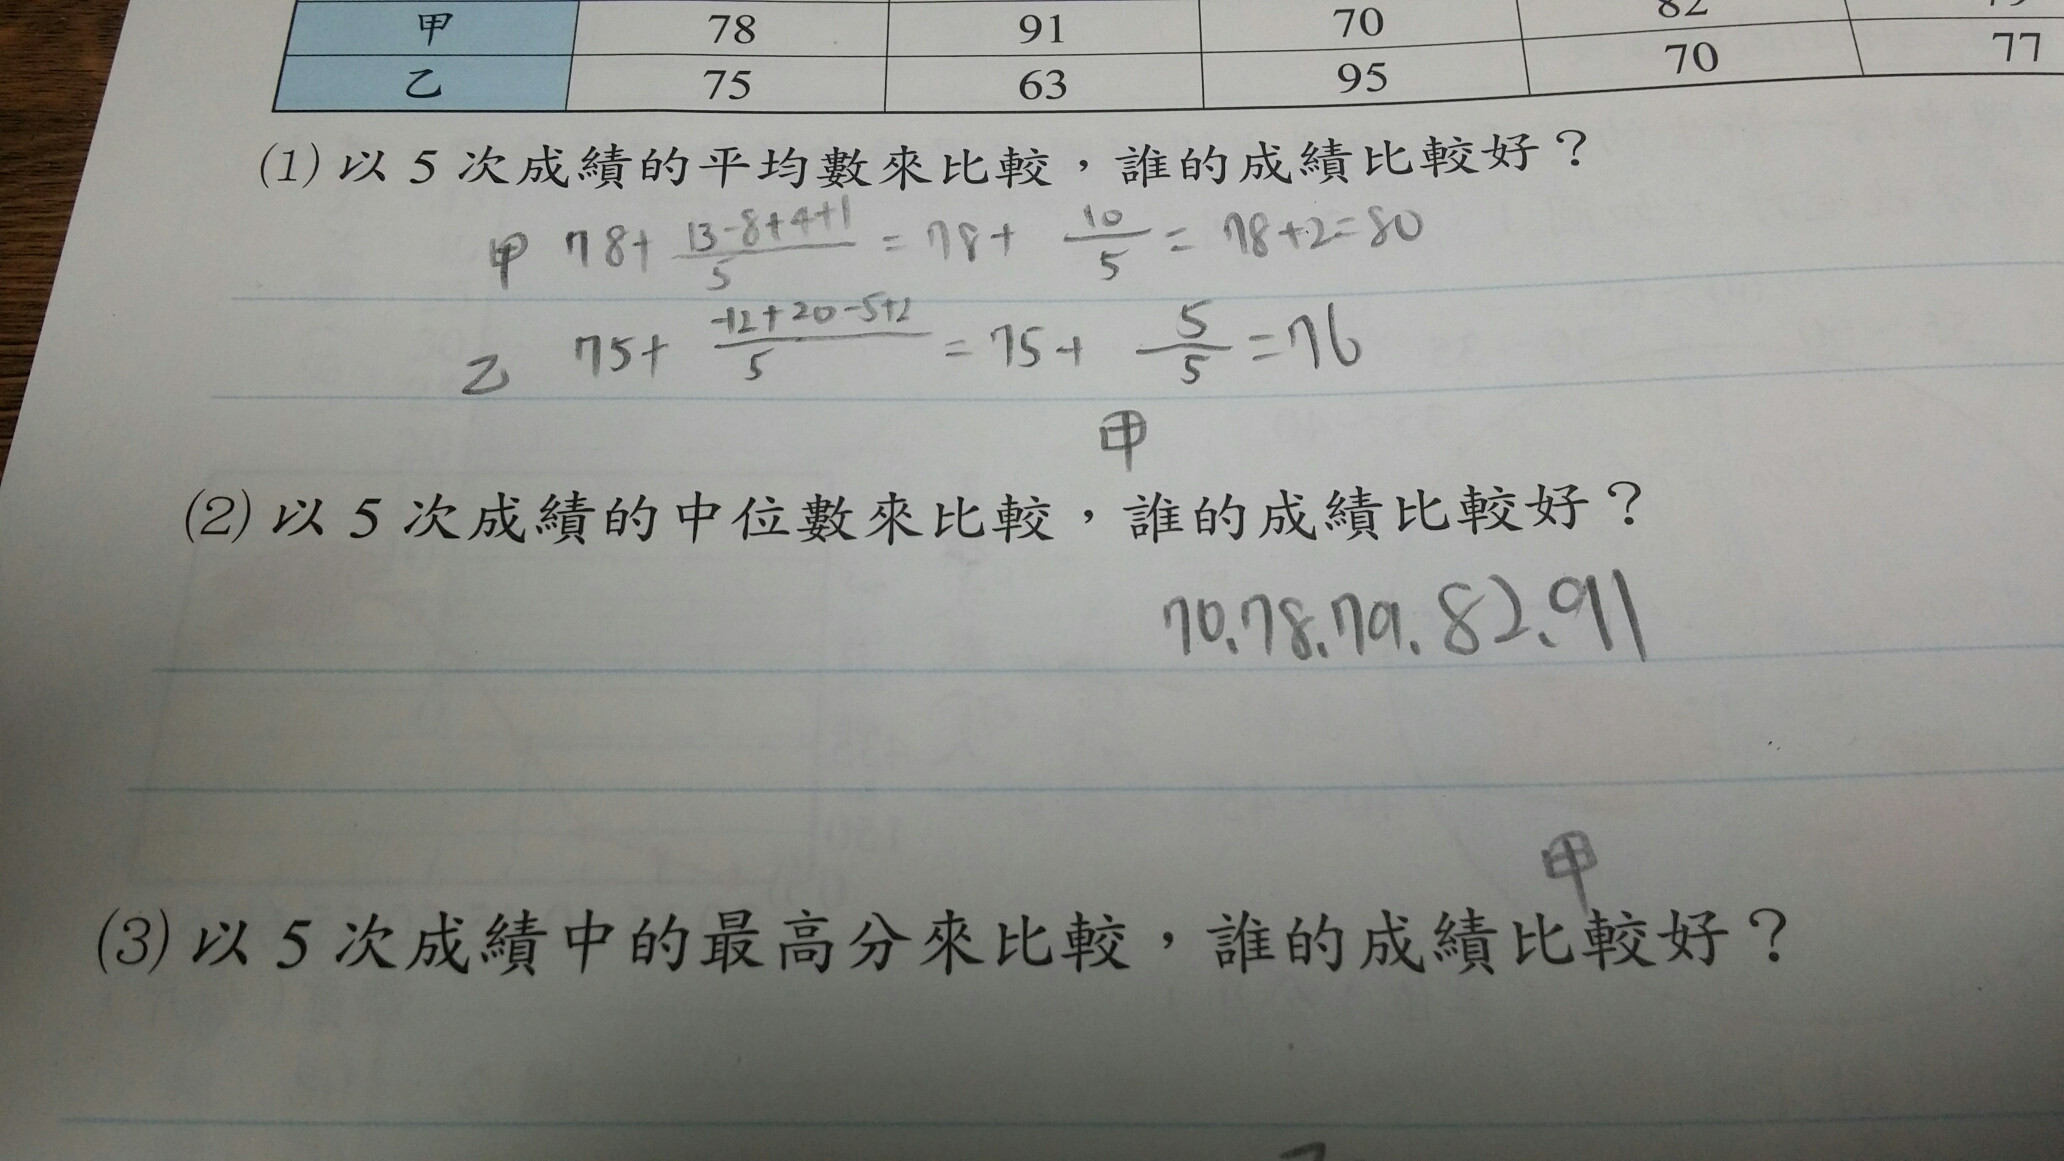 甲 78 91 70 82 79
乙 75 63 95 70 77
(1) 以 5 次成績的平均數來比較，誰的成績比較好？
甲 78+ 13-8+4+1/5 = 78+ 10/5 = 78+2=80
乙 75+ -12+20-5+2/5 = 75+ 5/5 =76
甲
(2) 以 5 次成績的中位數來比較，誰的成績比較好？
70.78.79.82.91
甲
(3) 以 5 次成績中的最高分來比較，誰的成績比較好？